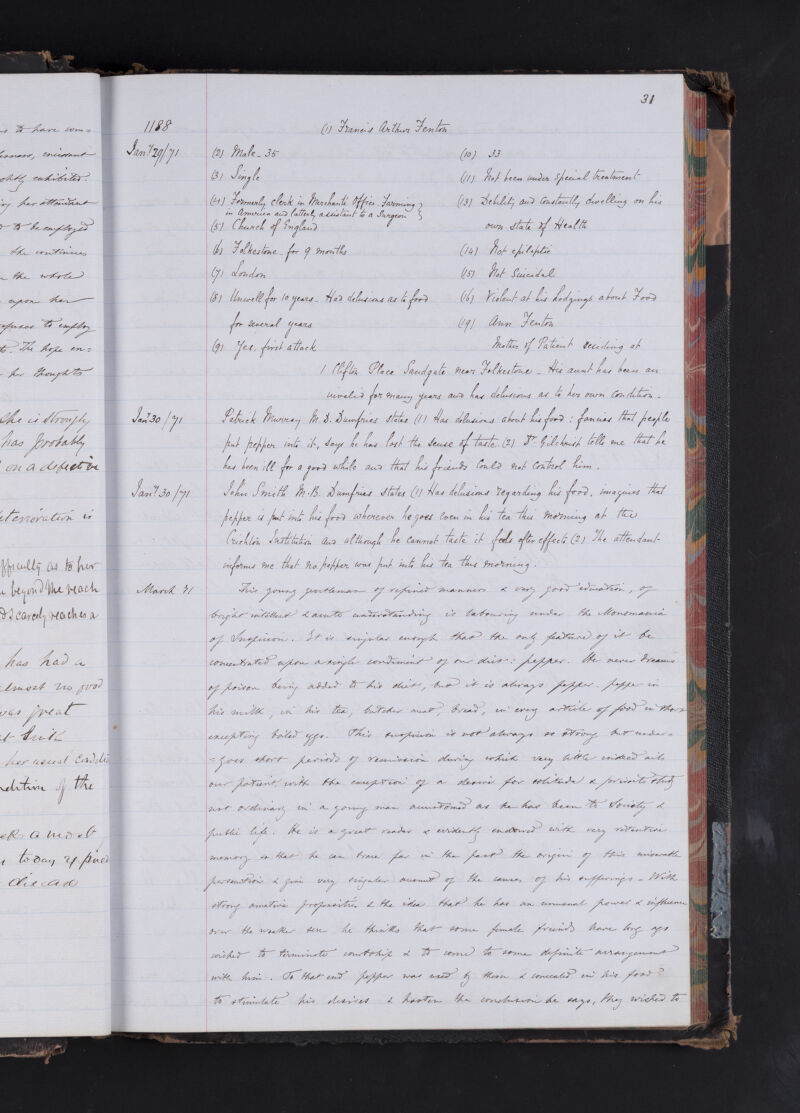 s to have com=
evinced
ghtly exhibited.
ing her attendant
to be employed
she continues
n the whole
upon her
refuses to employ
The hope en=
her thoughts
she is strongly
has probably
on a defective
deterioration is
difficulty as to her
beyond the reach
scarcely reaches a
has had a
almost no good
was great
her usual condit
ndition of the
a most
today
disease
31
1188
(1) Francis Arthur Fenton
Jany 29/71
(2) Male - 35
(3) Single
(4) Formerly clerk in Merchants Office. Farming
in America and latterly assistant to a Surgeon
(5) Church of England
(6) Folkestone for 9 months
(7) London
(8) Unwell for 10 years. Had delusions as to food
for several years
(9) Yes, first attack
(10) 33
(11) Not been under special treatment
(13) Debility and constantly dwelling on his
own state of Health
(14) Not epileptic
(15) Not Suicidal
(16) Violent at his Lodgings about Food
(19) Ann Fenton
Mother of Patient residing at
1 Clifton Place Sandgate near Folkestone - His aunt has been an
invalid for many years and has delusions as to her own condition.
Jany 30/71
Patrick Murray M.D. Dumfries states (1) Has delusions about his food: fancies that people
put pepper into it, says he has lost the sense of taste (2) Dr Gilchrist tells me that he
has been ill for a good while and that his friends could not control him.
Jany 30/71
John Smith M.B. Dumfries states (1) Has delusions regarding his food, imagines that
pepper is put into his food wherever he goes even in his tea this morning at the
Crichton Institution and although he cannot taste it feels after effects (2) The attendant
informs me that no pepper was put into his tea this morning.
March 71
This young gentleman of refined manners & very good education, of
bright intellect & acute understanding is labouring under the Monomania
of Suspicion. It is singular enough that the only feature of it be
concentrated upon a single condiment of our diet: pepper. He never dreams
of poison being added to his diet, but it is always pepper. pepper in
his milk, in his tea, butcher meat, bread, in every article of food in short
excepting boiled eggs. This suspicion is not always so strong but under=
=goes short periods of remission during which very little indeed ails
our patient, with the exception of a desire for solitude & private study
not ordinary in a young man accustomed as he has been to Society &
public life. He is a great reader & evidently endowed with very retentive
memory so that he can trace far in the past the origin of this miserable
persecution & give very singular account of the causes of his sufferings - With
strong amative propensities & the idea that he has an unusual power & influence
over the weaker sex he thinks that some female friends have long ago
wished to terminate courtship & to come to some definite arrangement
with him. To that end pepper was used by them & concealed in his food
to stimulate his desires & hasten the conclusion he says, they wished to